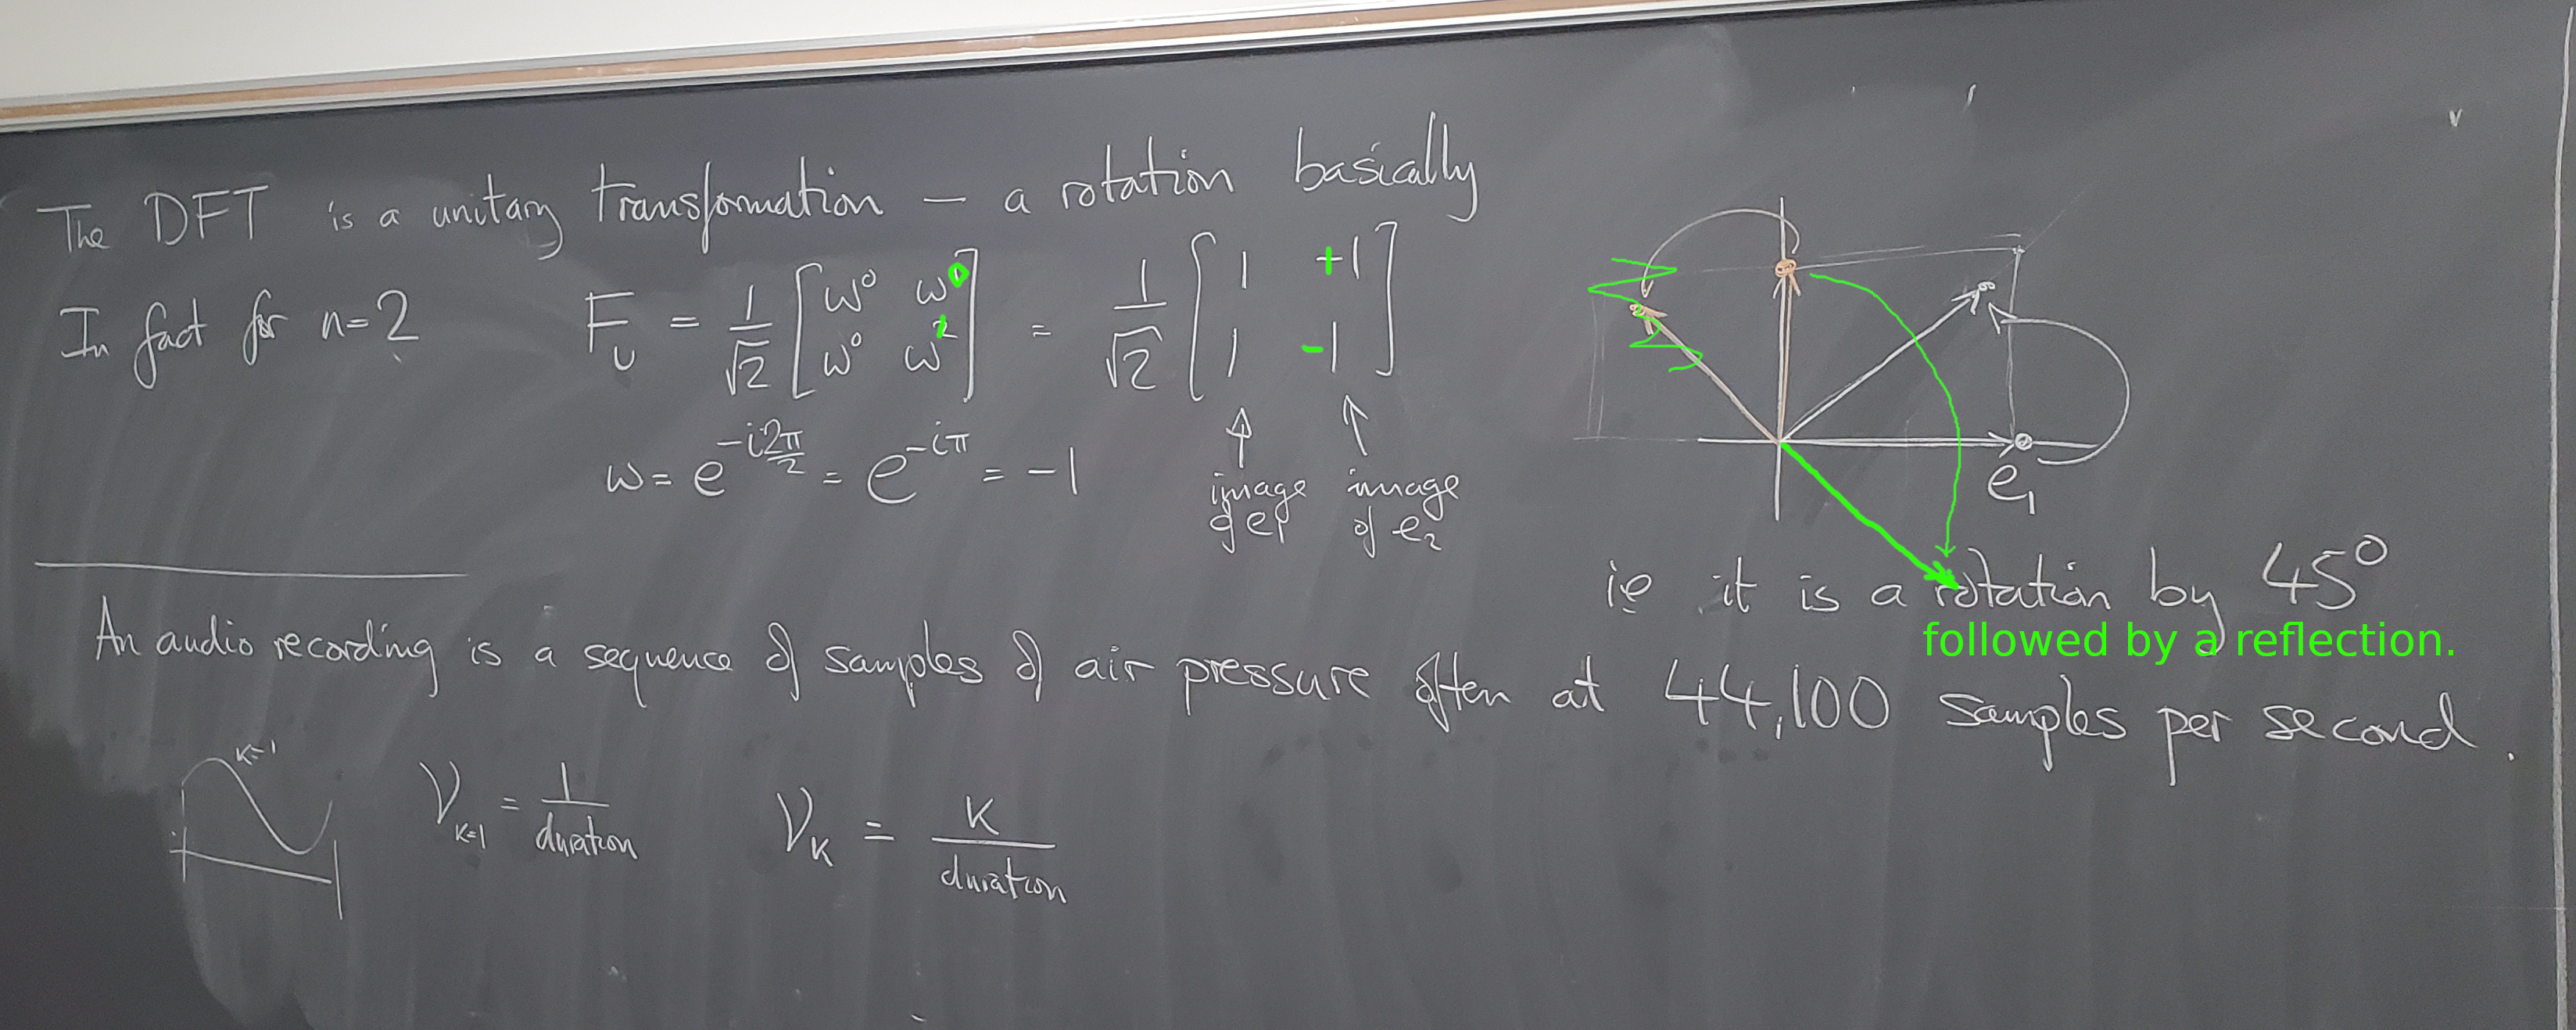 The DFT is a unitary transformation – a rotation basically
In fact for n=2 F_U = 1/√2 [ω⁰ ω⁰; ω⁰ ω¹] = 1/√2 [1 +1; 1 -1]
ω = e^(-i2π/2) = e^(-iπ) = -1
image of e1 image of e₂
e₁
ie it is a rotation by 45°
followed by a reflection.
An audio recording is a sequence of samples of air pressure often at 44,100 samples per second.
K=1
ν_K=1 = 1/duration ν_K = K/duration